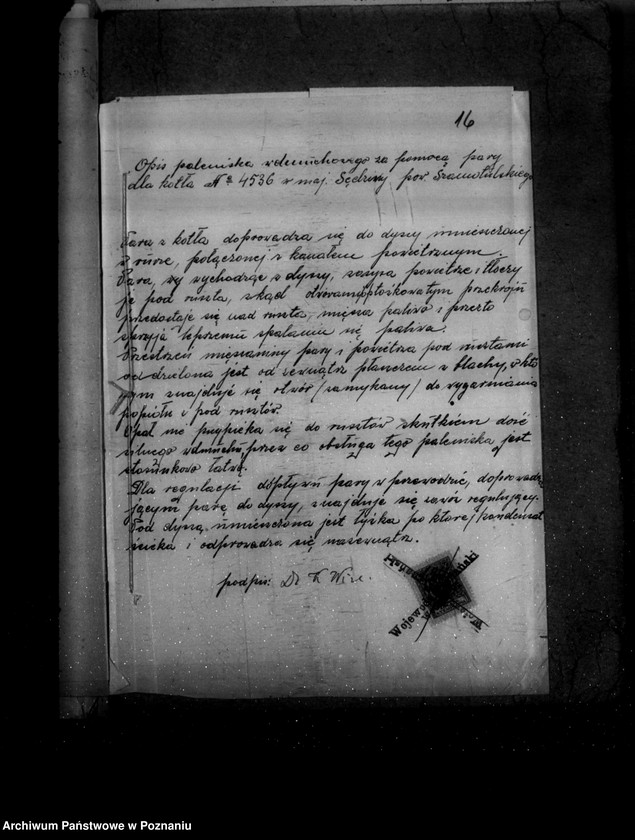 16
Opis paleniska wdmuchowego za pomocą pary
dla kotła № 4536 w maj. Sędziny pow. Szamotulskiego
Para z kotła doprowadza się do dyszy umieszczonej
w rurze, połączonej z kanałem powietrznym.
Para, wychodząc z dyszy, zasysa powietrze i tłoczy
je pod ruszta, skąd przekrojú
przedostaje się nad ruszta, miesza paliwo i przez to
sprzyja lepszemu spalaniu się paliwa.
Przestrzeń mieszaniny pary i powietrza pod rusztami
oddzielona jest od zewnątrz płaszczem z blachy, w któ
rym znajduje się otwór /zamykany/ do wygarniania
popiołu z pod rusztów.
Opał nie przypieka się do rusztów skutkiem dość
silnego wdmuchu przez co obsługa tego paleniska jest
stosunkowo łatwą.
Dla regulacji dopływu pary w przewodzie, doprowadza
jącym parę do dyszy, znajduje się zawór regulujący.
Pod dyszą umieszczona jest łyżka po której kondensat
ścieka i odprowadza się nazewnątrz.
podpis: Dr
Archiwum Państwowe w Poznaniu